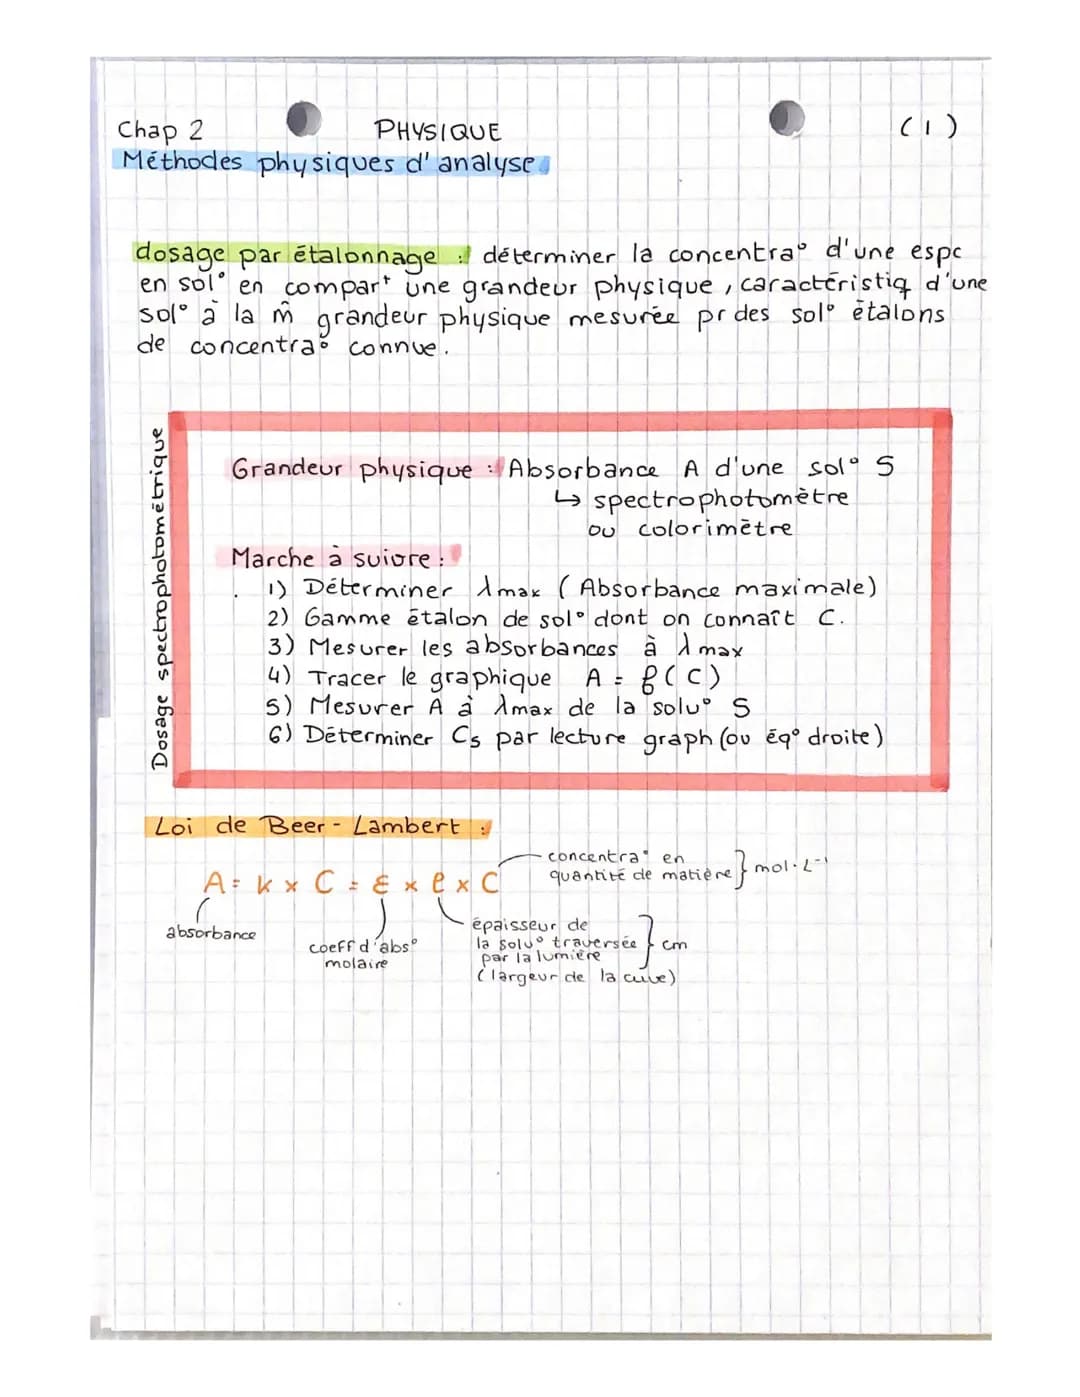 Chap 2
PHYSIQUE
(1)
Méthodes physiques d'analyse
dosage par étalonnage : déterminer la concentra° d'une espc
en sol° en compart une grandeur physique, caractéristiq d'une
sol° à la m̂ grandeur physique mesurée pr des sol° étalons
de concentra° connue.
Dosage spectrophotométrique
Grandeur physique : Absorbance A d'une sol° S
↳ spectrophotomètre
ou colorimètre
Marche à suivre :
1) Déterminer λmax (Absorbance maximale)
2) Gamme étalon de sol° dont on connaît C.
3) Mesurer les absorbances à λmax
4) Tracer le graphique A = f(C)
5) Mesurer A à λmax de la solu° S
6) Déterminer Cs par lecture graph (ou éq° droite)
Loi de Beer-Lambert :
A = k x C = ε x l x C
concentra° en
quantité de matière } mol.L⁻¹
absorbance
coeff d'abs°
molaire
épaisseur de
la solu° traversée } cm
par la lumière
(largeur de la cuve)